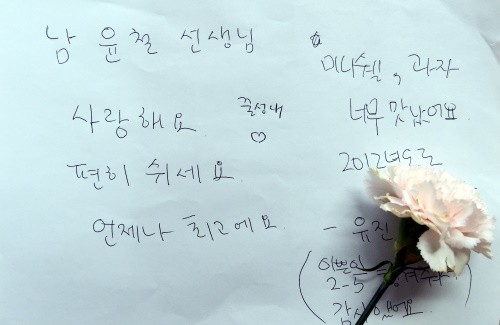 남 윤철 선생님
사랑해요
편히 쉬세요
언제나 최고에요
미니쉘, 과자
너무 맛났어요
2012년도
- 유진
이쁜
2-5
감사했어요